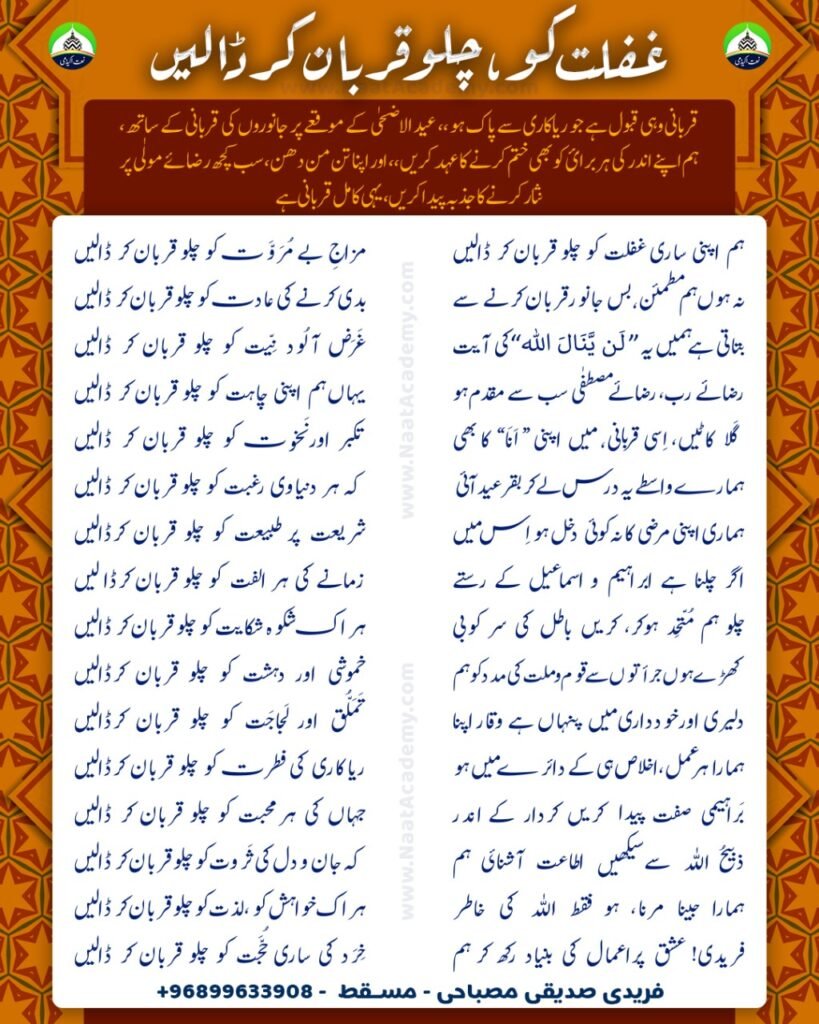 غفلت کو، چلو قربان کر ڈالیں
نعت اکیڈمی
نعت اکیڈمی
www.NaatAcademy.com
قربانی وہی قبول ہے جو ریاکاری سے پاک ہو،، عید الاضحیٰ کے موقعے پر جانوروں کی قربانی کے ساتھ،
ہم اپنے اندر کی ہر برائ کو بھی ختم کرنے کا عہد کریں،، اور اپنا تن من دھن، سب کچھ رضائے مولٰی پر
نثار کرنے کا جذبہ پیدا کریں، یہی کامل قربانی ہے
ہم اپنی ساری غفلت کو چلو قربان کر ڈالیں مزاجِ بے مُرَوَّت کو چلو قربان کر ڈالیں
نہ ہوں ہم مطمئن، بس جانور قربان کرنے سے بدی کرنے کی عادت کو چلو قربان کر ڈالیں
بتاتی ہے ہمیں یہ ”لَن يَّنَالَ الله“ کی آیت غَرَض آلُود نِیّت کو چلو قربان کر ڈالیں
رضائے رب، رضائے مصطفٰی سب سے مقدم ہو یہاں ہم اپنی چاہت کو چلو قربان کر ڈالیں
گلا کاٹیں، اِسی قربانی میں اپنی ”اَنَا“ کا بھی تکبر اور نَخوت کو چلو قربان کر ڈالیں
ہمارے واسطے یہ درس لے کر بقر عید آئی کہ ہر دنیاوی رغبت کو چلو قربان کر ڈالیں
ہماری اپنی مرضی کا نہ کوئی دخل ہو اِس میں شریعت پر طبیعت کو چلو قربان کر ڈالیں
اگر چلنا ہے ابراہیم و اسماعیل کے رستے زمانے کی ہر الفت کو چلو قربان کر ڈالیں
چلو ہم مُتّحِد ہوکر، کریں باطل کی سر کوبی ہر اک شکوہ شکایت کو چلو قربان کر ڈالیں
کھڑے ہوں جرأتوں سے قوم و ملت کی مدد کو ہم خموشی اور دہشت کو چلو قربان کر ڈالیں
دلیری اور خود داری میں پنہاں ہے وقار اپنا تَمَلُّق اور لَجاجَت کو چلو قربان کر ڈالیں
ہمارا ہر عمل، اخلاص ہی کے دائرے میں ہو ریا کاری کی فطرت کو چلو قربان کر ڈالیں
بَراہیمی صفت پیدا کریں کردار کے اندر جہاں کی ہر محبت کو چلو قربان کر ڈالیں
ذبیحُ اللہ سے سیکھیں اطاعت آشنائی ہم کہ جان و دل کی ثَروت کو چلو قربان کر ڈالیں
ہمارا جینا مرنا، ہو فقط اللہ کی خاطر ہر اک خواہش کو، لذت کو چلو قربان کر ڈالیں
فریدی! عشق پر اعمال کی بنیاد رکھ کر ہم خِرَد کی ساری حُجَّت کو چلو قربان کر ڈالیں
www.NaatAcademy.com
www.NaatAcademy.com
فریدی صدیقی مصباحی - مسقط - 96899633908+